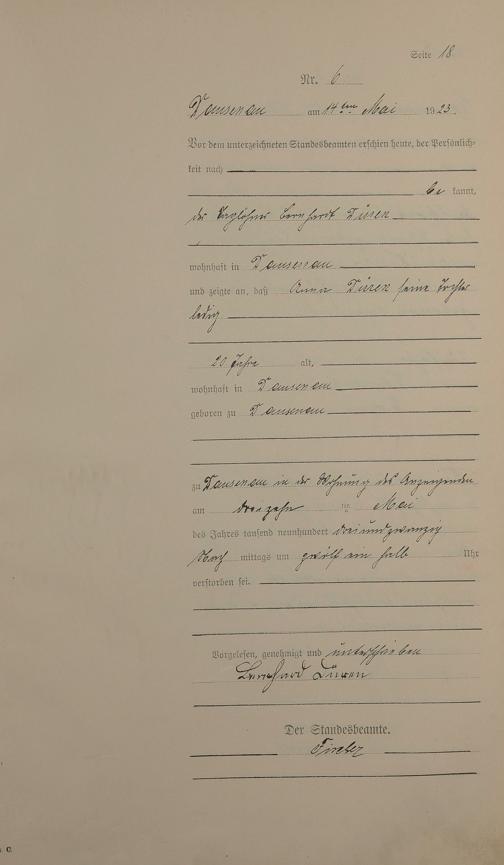 Seite 18
Nr. 6
Dausenau am 14ten Mai 1923.
Vor dem unterzeichneten Standesbeamten erschien heute, der Persönlich-
keit nach
be kannt,
der Taglöhner Bernhardt Düren
wohnhaft in Dausenau
und zeigte an, daß Anna Düren seine Tochter
ledig
20 Jahre alt,
wohnhaft in Dausenau
geboren zu Dausenau
zu Dausenau in der Wohnung des Anzeigenden
am dreizehn ten Mai
des Jahres tausend neunhundert dreiundzwanzig
Nach mittags um zwölf ein halb Uhr
verstorben sei.
Vorgelesen, genehmigt und unterschrieben
Bernhard Düren
Der Standesbeamte.
C.